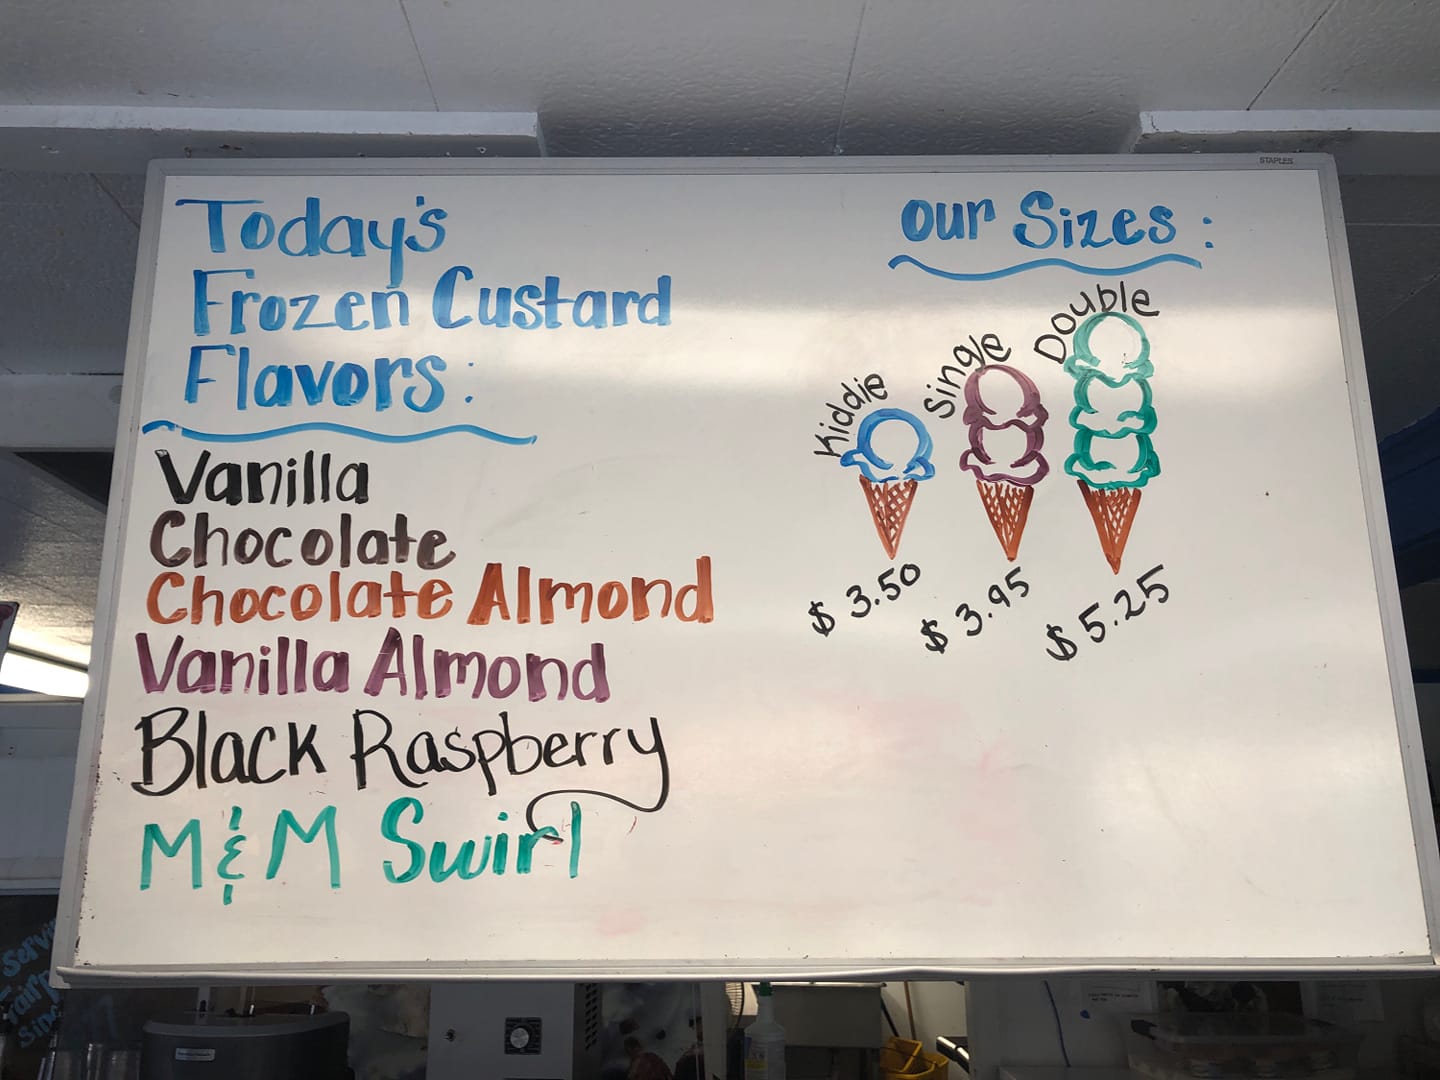 STAPLES
Today's
Frozen Custard
Flavors:
Vanilla
Chocolate
Chocolate Almond
Vanilla Almond
Black Raspberry
M&M Swirl
our Sizes:
Kiddie
Single
Double
$ 3.50
$ 3.95
$ 5.25